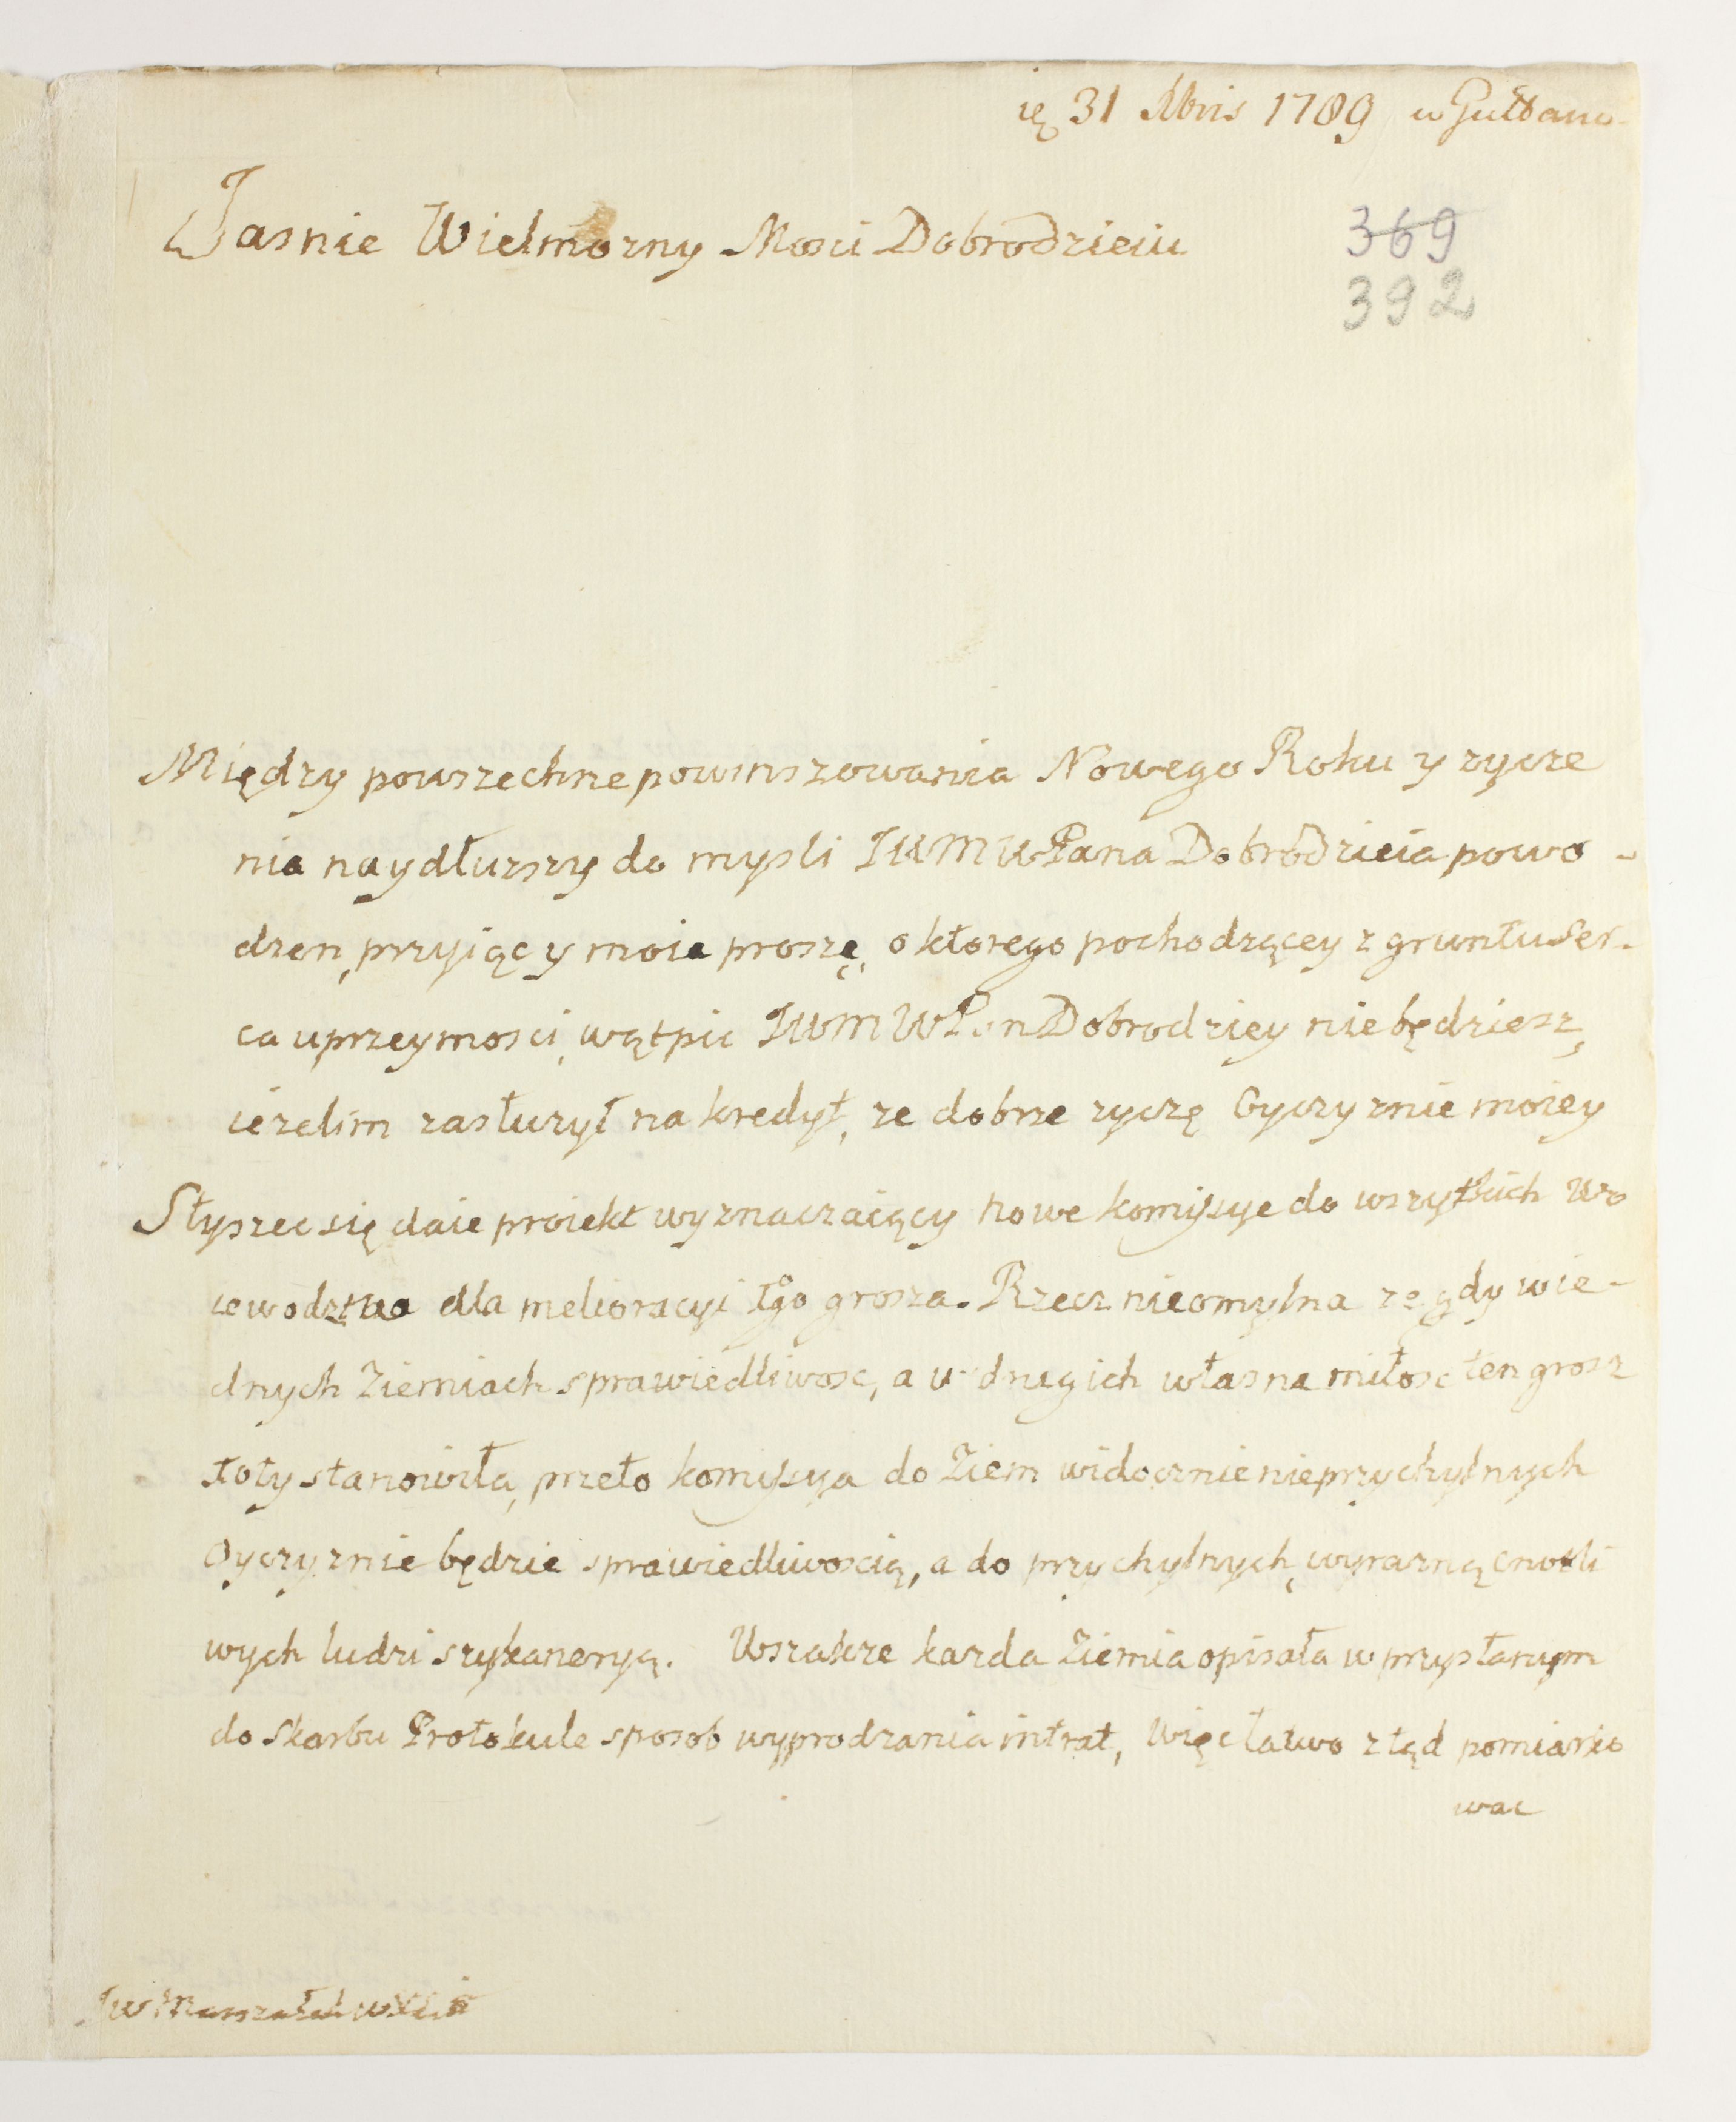 31 Xbris 1789 w
Jasnie Wielmozny Mosci Dobrodzieiu
369
392
Między powszechne powinszowania Nowego Roku y zycze
nia naydłuzszy do mysli JWMWPana Dobrodzieia powo -
dzen, przyiąc y moie proszę, o ktorego pochodzącey z gruntu Ser-
ca uprzeymosci, wątpic JWMWPan Dobrodziey nie będziesz,
iezelim zasłuzył na kredyt, ze dobrze zyczę Oyczyznie moiey
Słyszec się daie proiekt wyznaczaiący nowe komissye do wszytkich Wo
iewodztwo dla melioracyi 10go grosza. Rzecz nieomylna ze gdy w ie-
dnych Ziemiach sprawiedliwosc, a w drugich własna miłosc ten grosz
stanowiła, przeto komissya do Ziem widocznie nieprzychylnych
Oyczyznie będzie sprawiedliwoscią, a do przychylnych, wyrazną cnotli
wych ludzi szykaneryą. Wszakze kazda Ziemia opisała w przysłanym
do Skarbu Protokule sposob wyprodzania intrat, Więc łatwo ztąd pomiarko
wac